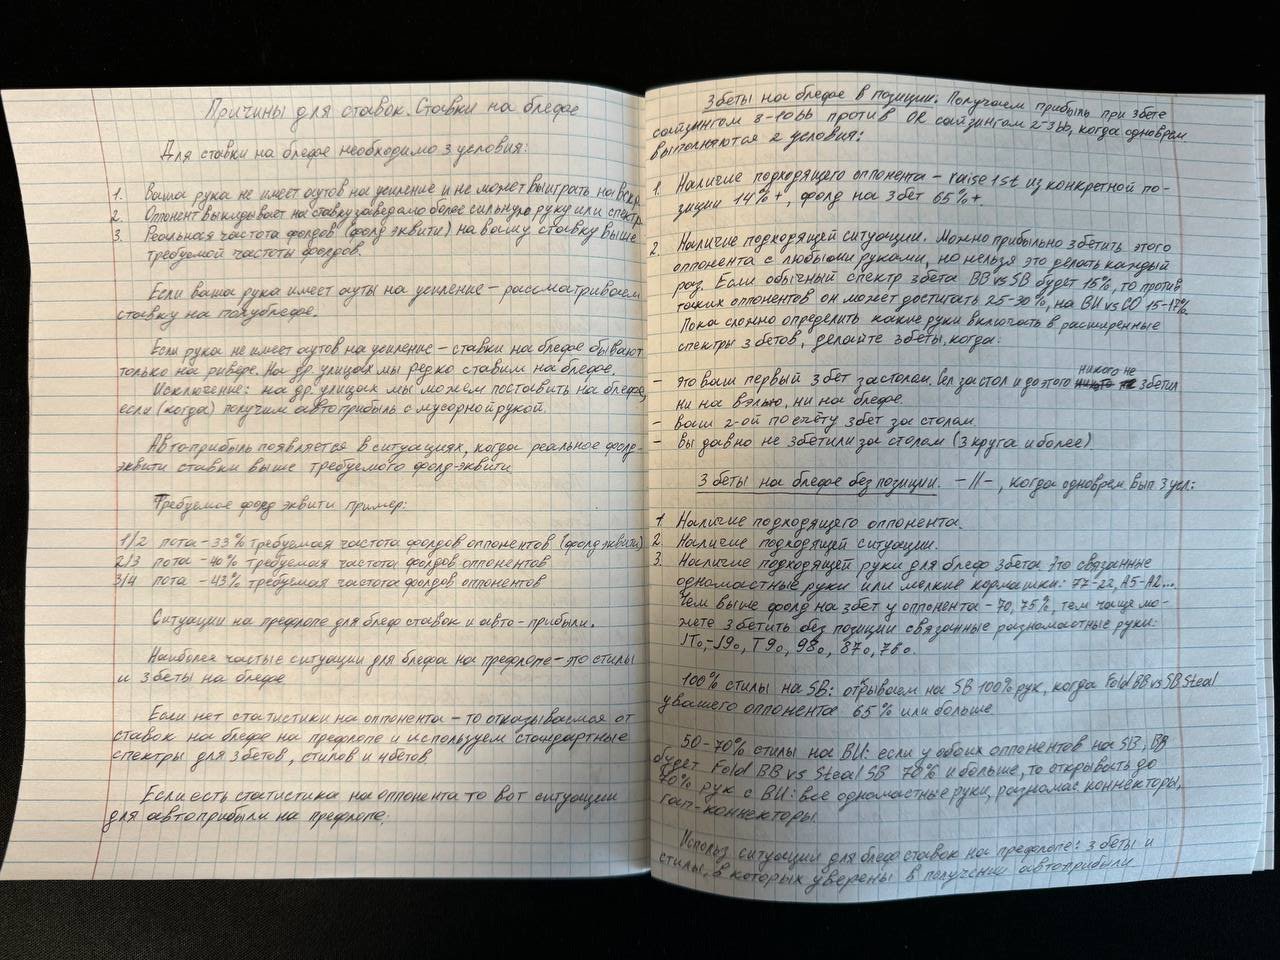 Причины для ставок. Ставки на блефе
Для ставки на блефе необходимо 3 условия:
1. Ваша рука не имеет аутов на усиление и не может выиграть на вскр.
2. Оппонент выкидывает на ставку заведомо более сильную руку или спектр
3. Реальная частота фолдов (фолд эквити) на вашу ставку выше
требуемой частоты фолдов.
Если ваша рука имеет ауты на усиление – рассматриваем
ставку на полублефе.
Если рука не имеет аутов на усиление – ставки на блефе бывают
только на ривере. На др. улицах мы редко ставим на блефе.
Исключение: на др. улицах мы можем поставить на блефе,
если (когда) получим автоприбыль с мусорной рукой.
Автоприбыль появляется в ситуациях, когда реальное фолд-
эквити ставки выше требуемого фолд-эквити
Требуемое фолд эквити пример:
1/2 пота – 33% требуемая частота фолдов оппонентов (фолд эквити)
2/3 пота – 40% требуемая частота фолдов оппонентов
3/4 пота – 43% требуемая частота фолдов оппонентов
Ситуации на префлопе для блеф ставок и авто-прибыли.
Наиболее частые ситуации для блефа на префлопе – это стилы
и 3беты на блефе
Если нет статистики на оппонента – то отказываемся от
ставок на блефе на префлопе и используем стандартные
спектры для 3бетов, стилов и 4бетов
Если есть статистика на оппонента то вот ситуации
для автоприбыли на префлопе.
3беты на блефе в позиции. Получаем прибыль при 3бете
сайзингом 8-10bb против OR сайзингом 2-3bb, когда одноврем.
выполняются 2 условия:
1. Наличие подходящего оппонента – raise 1st из конкретной по-
зиции 14%+, фолд на 3бет 65%+.
2. Наличие подходящей ситуации. Можно прибыльно 3бетить этого
оппонента с любыми руками, но нельзя это делать каждый
раз. Если обычный спектр 3бета BB vs SB будет 15%, то против
таких оппонентов он может достигать 25-30%, на BU vs CO 15-17%.
Пока сложно определить какие руки включать в расширенные
спектры 3бетов, делайте 3беты, когда:
– это ваш первый 3бет за столом. Сел за стол и до этого никого не 3бетил
ни на вэлью, ни на блефе.
– ваш 2-ой по счёту 3бет за столом.
– вы давно не 3бетили за столом (3 круга и более)
3беты на блефе без позиции. –//–, когда одноврем. вып. 3 усл:
1. Наличие подходящего оппонента.
2. Наличие подходящей ситуации.
3. Наличие подходящей руки для блеф 3бета. Это связанные
одномастные руки или мелкие кармашки: 77-22, A5-A2...
Чем выше фолд на 3бет у оппонента – 70, 75%, тем чаще мо-
жете 3бетить без позиции связанные разномастные руки:
JTo,-J9o, T9o, 98o, 87o, 76o.
100% стилы на SB: открываем на SB 100% рук, когда Fold BB vs SB Steal
у вашего оппонента 65% или больше
50-70% стилы на BU: если у обоих оппонентов на SB, BB
будет Fold BB vs Steal SB 70% и больше, то открывать до
70% рук с BU: все одномастные руки, разномас. коннекторы,
гап-коннекторы.
Использ. ситуации для блеф ставок на префлопе: 3беты и
стилы, в которых уверены в получении автоприбыли